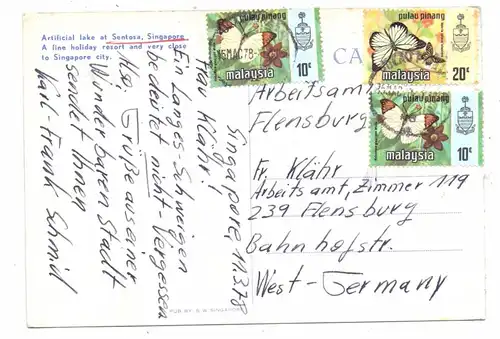 Artificial lake at Sentosa, Singapore
A fine holiday resort and very close
to Singapore city.
Singapore, 11.3.78
Frau Klähr!
Ein Langes-Schweigen
bedeutet nicht-Vergessen
Also: Grüße aus einer
Wunderbaren Stadt
sendet Ihnen
Karl-Frank Schmid
PUB BY: S.W. SINGAPORE
pulau pinang
malaysia
10¢
pulau pinang
malaysia
20¢
pulau pinang
malaysia
10¢
CA
Arbeitsamt
Flensburg
Fr. Klähr
Arbeitsamt, Zimmer 119
239 Flensburg
Bahnhofstr.
West-Germany